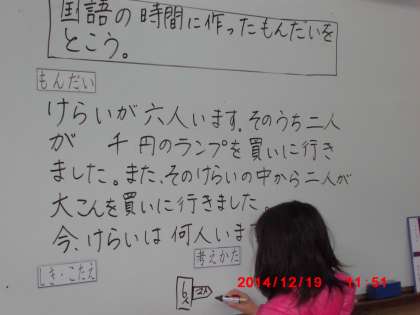 国語の時間に作ったもんだいを
とこう。
もんだい
けらいが六人います。そのうち二人
が 千円のランプを買いに行き
ました。また、そのけらいの中から二人が
大こんを買いに行きました。
今、けらいは何人いま
しき・こたえ
考えかた
6人
2人
2014/12/19 11:51